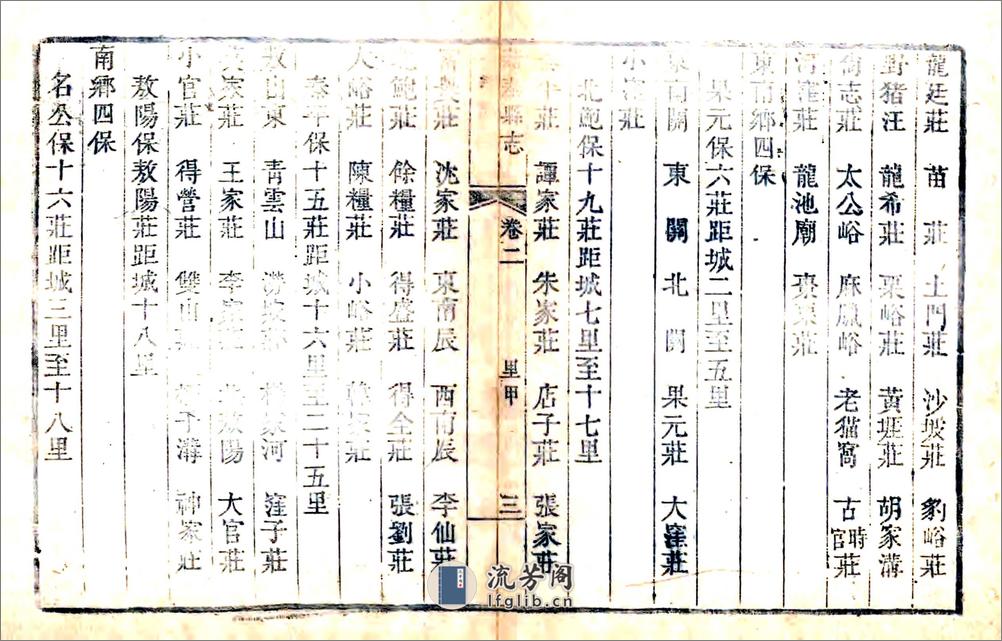 龍廷莊 苗莊 土門莊 沙坡莊 豹峪莊
野猪汪 龍希莊 栗峪莊 黃堐莊 胡家溝
尙志莊 太公峪 麻 峪 老猫窩 古時官莊
窪莊 龍池廟 棗 莊
東南鄉四保
果元保六莊距城二里至五里
東南關 東關 北關 果元莊 大窪莊
小 莊
北鮑保十九莊距城七里至十七里
莊 譚家莊 朱家莊 店子莊 張家莊
縣志 卷二 里甲 三
莊 沈家莊 東南辰 西南辰 李仙莊
鮑莊 餘糧莊 得盛莊 得全莊 張劉莊
大峪莊 陳糧莊 小峪莊 莊
泰平保十五莊距城十六里至二十五里
敖山東 青雲山 河 窪子莊
家莊 王家莊 李家 陽 大官莊
小官莊 得營莊 雙山 子溝 神家莊
敖陽保敖陽莊距城十八里
南鄉四保
名公保十六莊距城三里至十八里
流芳阁
lfglib.cn